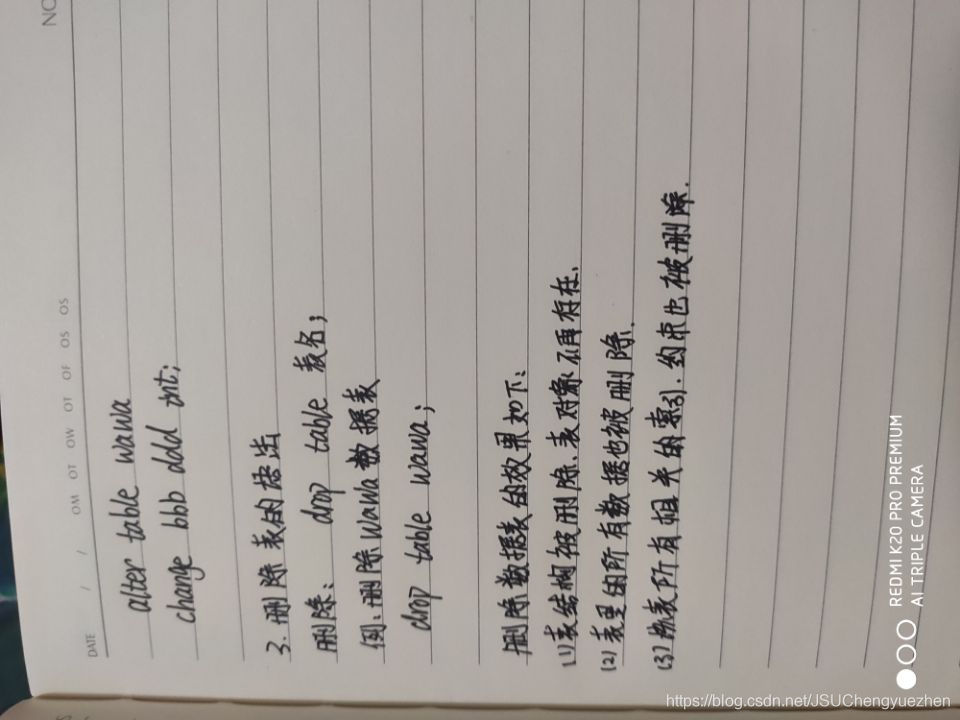 NO
DATE / / OM OT OW OT OF OS OS
alter table wawa
change bbb ddd int;
3. 删除表的语法
删除: drop table 表名;
例:删除wawa数据表
drop table wawa;
删除数据表的效果如下:
(1)表结构被删除,表对象不再存在.
(2)表里的所有数据也被删除.
(3)该表所有相关的索引.约束也被删除.
REDMI K20 PRO PREMIUM
AI TRIPLE CAMERA
https://blog.csdn.net/JSUChengyuezhen